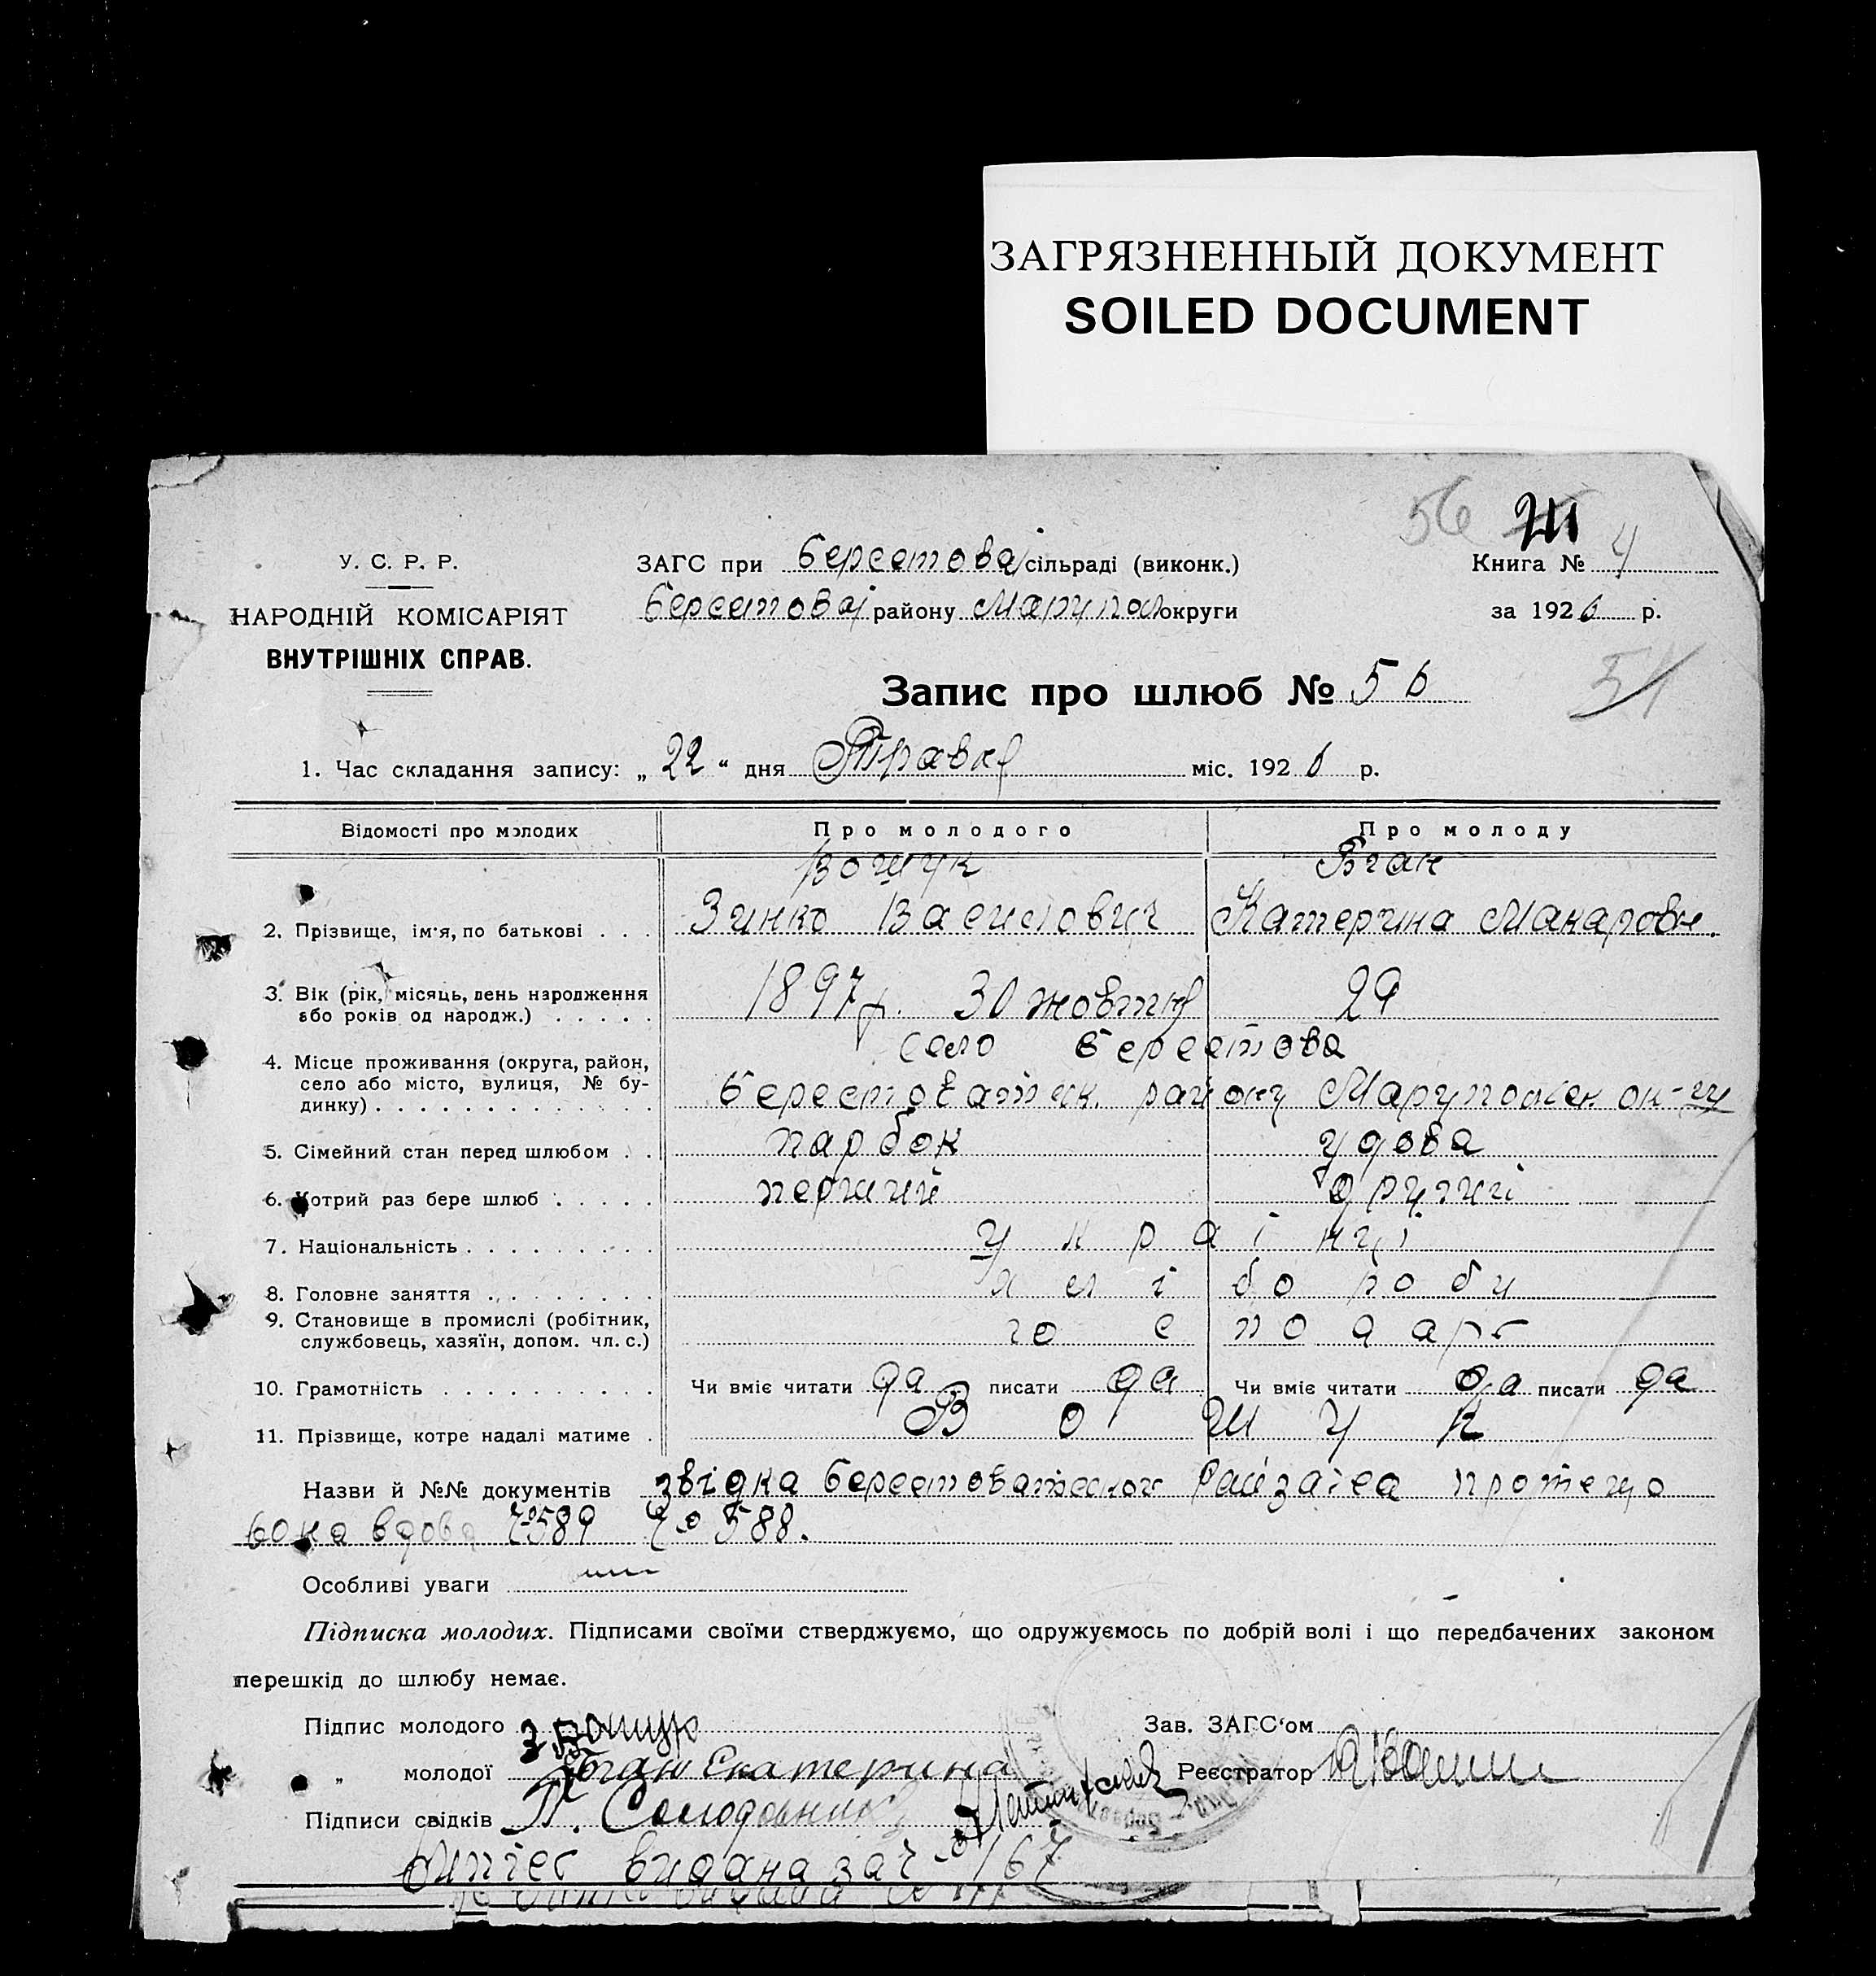 ЗАГРЯЗНЕННЫЙ ДОКУМЕНТ
SOILED DOCUMENT
56
У. С. Р. Р.
НАРОДНІЙ КОМІСАРІЯТ
ВНУТРІШНІХ СПРАВ.
ЗАГС при Берестовај сільраді (виконк.)
Берестовај району Марупол округи
Книга № 4
за 1926 р.
Запис про шлюб № 56
51
1. Час складання запису: „ 22 “ дня Травня міс. 1926 р.
Відомості про молодих Про молодого Про молоду
Вошук Бган
2. Прізвище, ім'я, по батькові . . . Зинко Василович Катерина Макаровн.
3. Вік (рік, місяць, день народження 1897 р. 30 жовтня 29
або років од народж.) . . . . .
село Берестова
4. Місце проживання (округа, район,
село або місто, вулиця, № бу-
динку) . . . . . . . . . . . . . Берестоватск. району Марупольск ок-ги
5. Сімейний стан перед шлюбом . . парбок удова
6. Котрий раз бере шлюб . . . . . перший другий
7. Національність . . . . . . . . . українці
8. Головне заняття . . . . . . . . хліборобу
9. Становище в промислі (робітник,
службовець, хазяїн, допом. чл. с.) господарі
10. Грамотність . . . . . . . . . . Чи вміє читати да писати да Чи вміє читати да писати да
11. Прізвище, котре надалі матиме . Вошук
Назви й №№ документів звідка Берестоватской Райзагса про те що
вона вдова № 589 № 588.
Особливі уваги
Підписка молодих. Підписами своїми стверджуємо, що одружуємось по добрій волі і що передбачених законом
перешкід до шлюбу немає.
Підпис молодого З Вошук Зав. ЗАГС'ом
„ молодої Бган Екатерина Реєстратор
Підписи свідків
Випіс видана за № 167